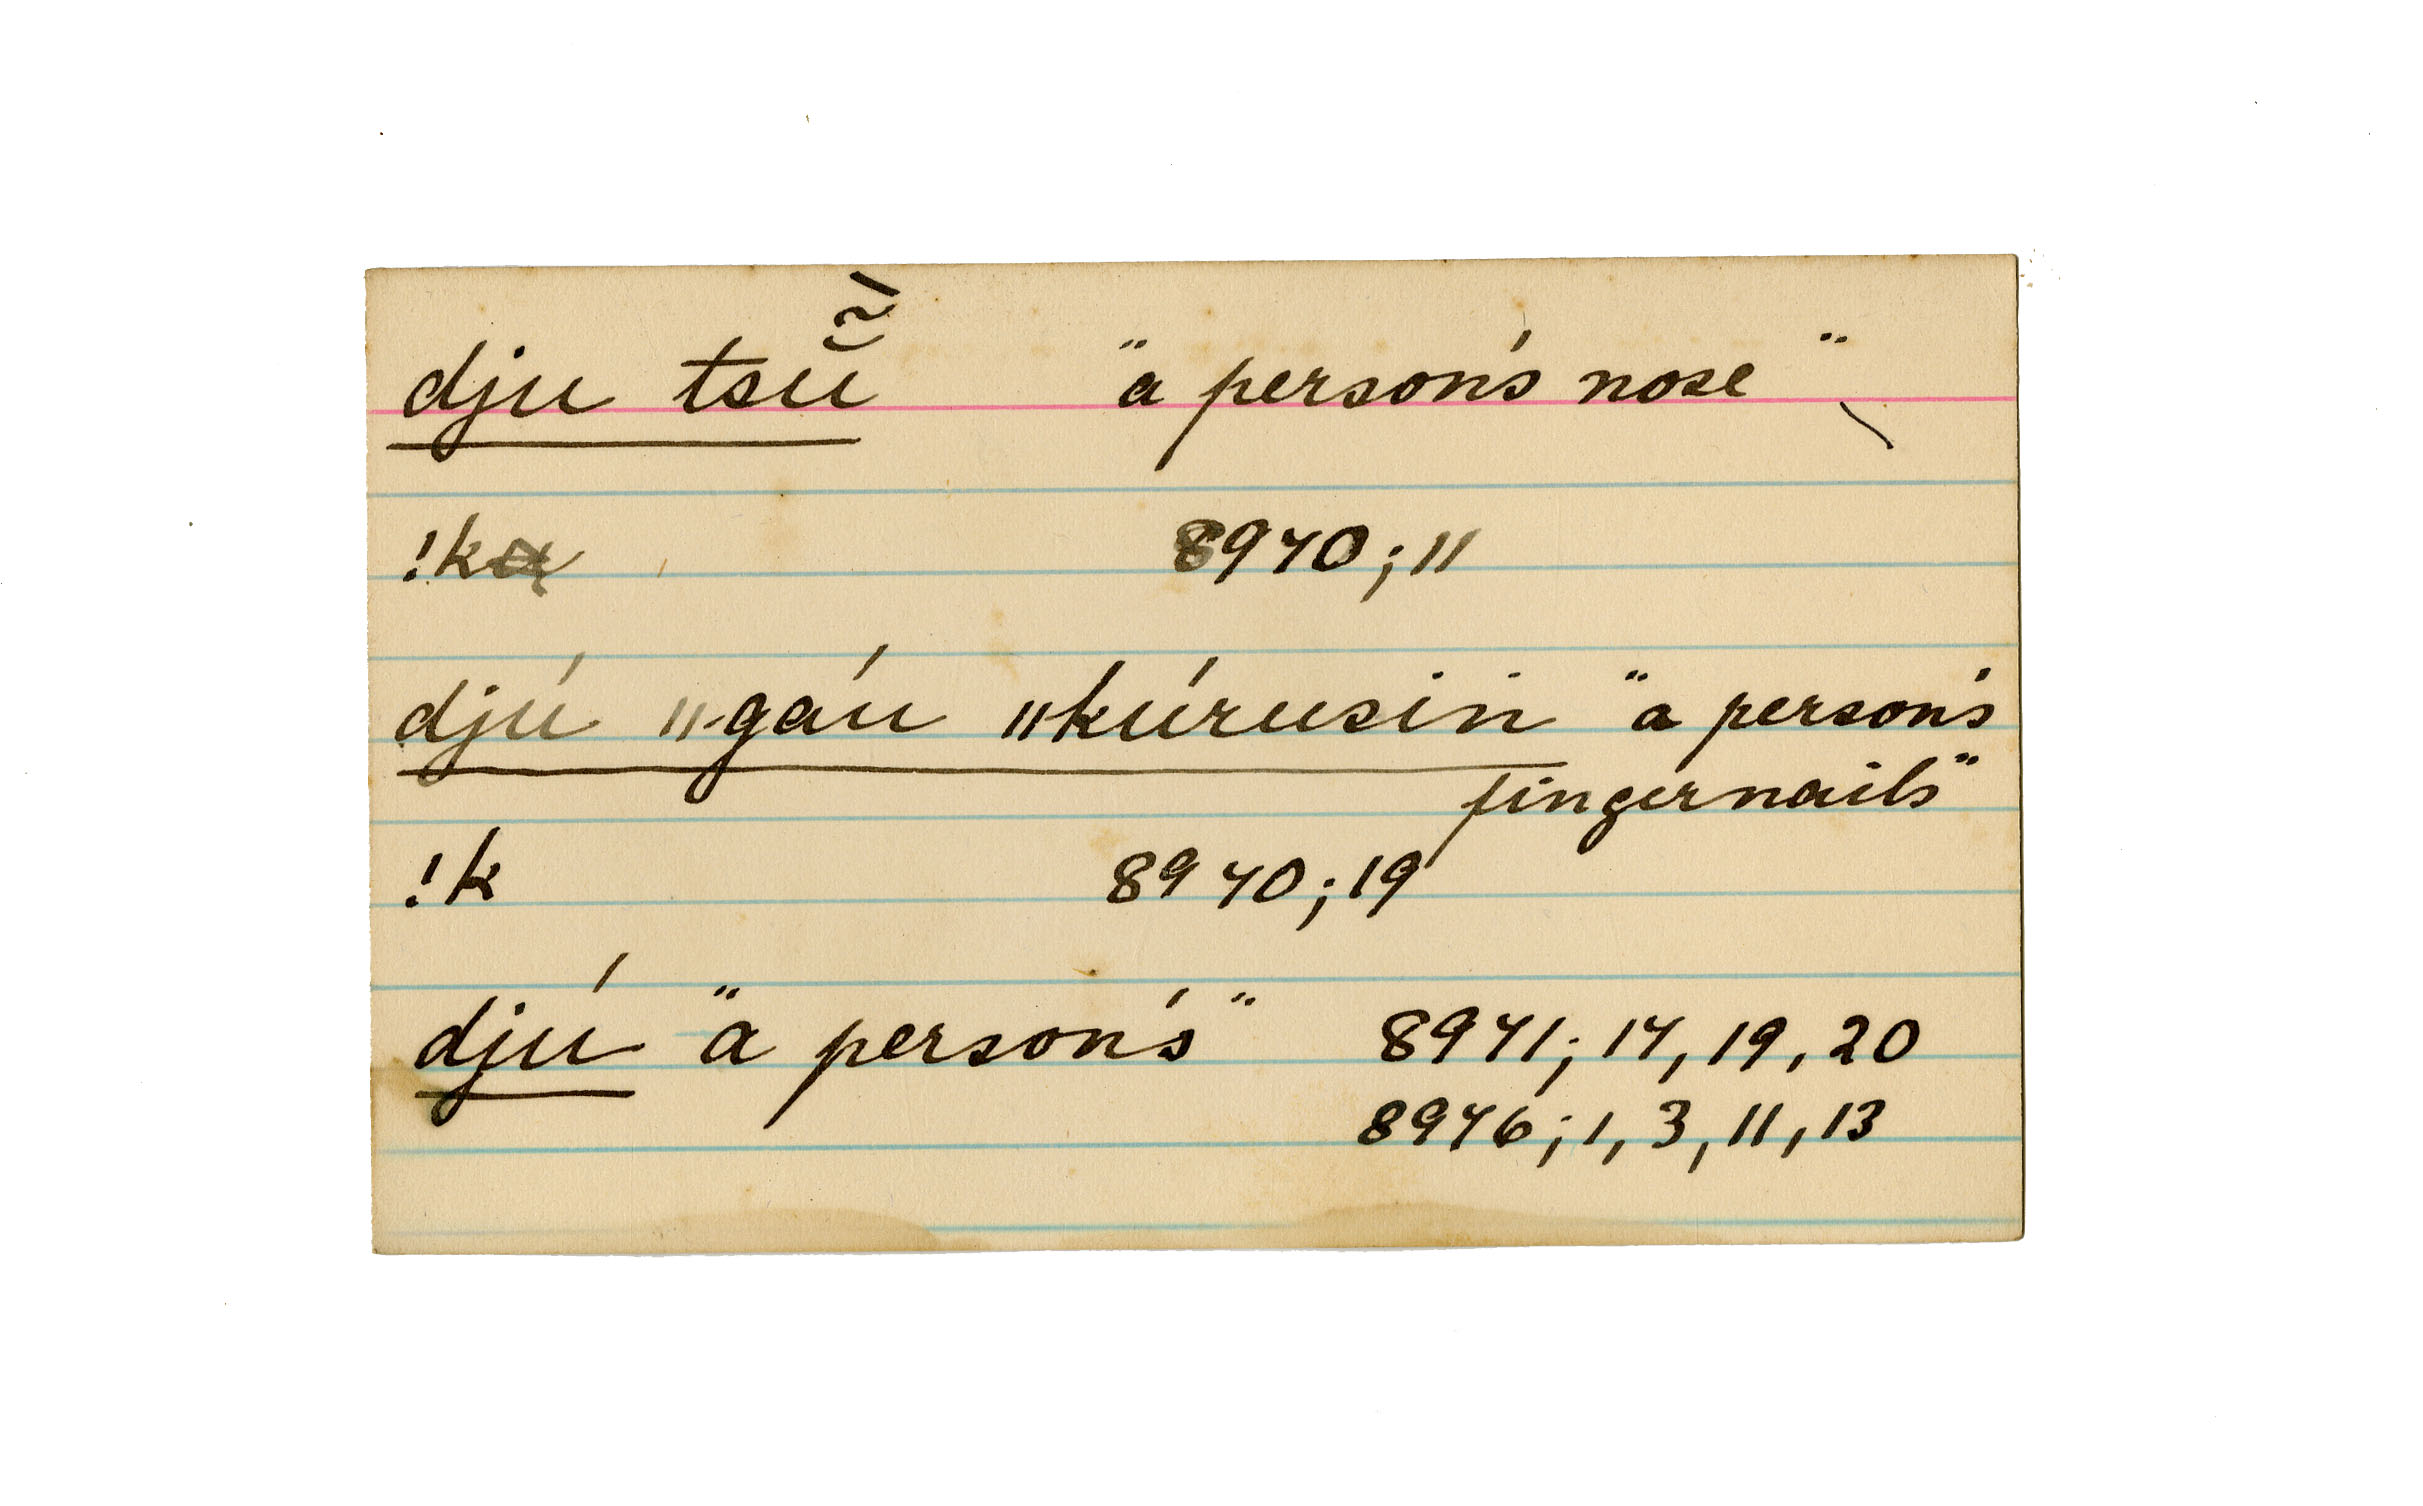 dju tsŭ̃̀ "a person's nose"
!k 8970; 11
djú ǁgáu ǁkúrusin "a person's
fingernails"
!k 8970; 19
djú "a person's" 8971; 17, 19, 20
8976; 1, 3, 11, 13